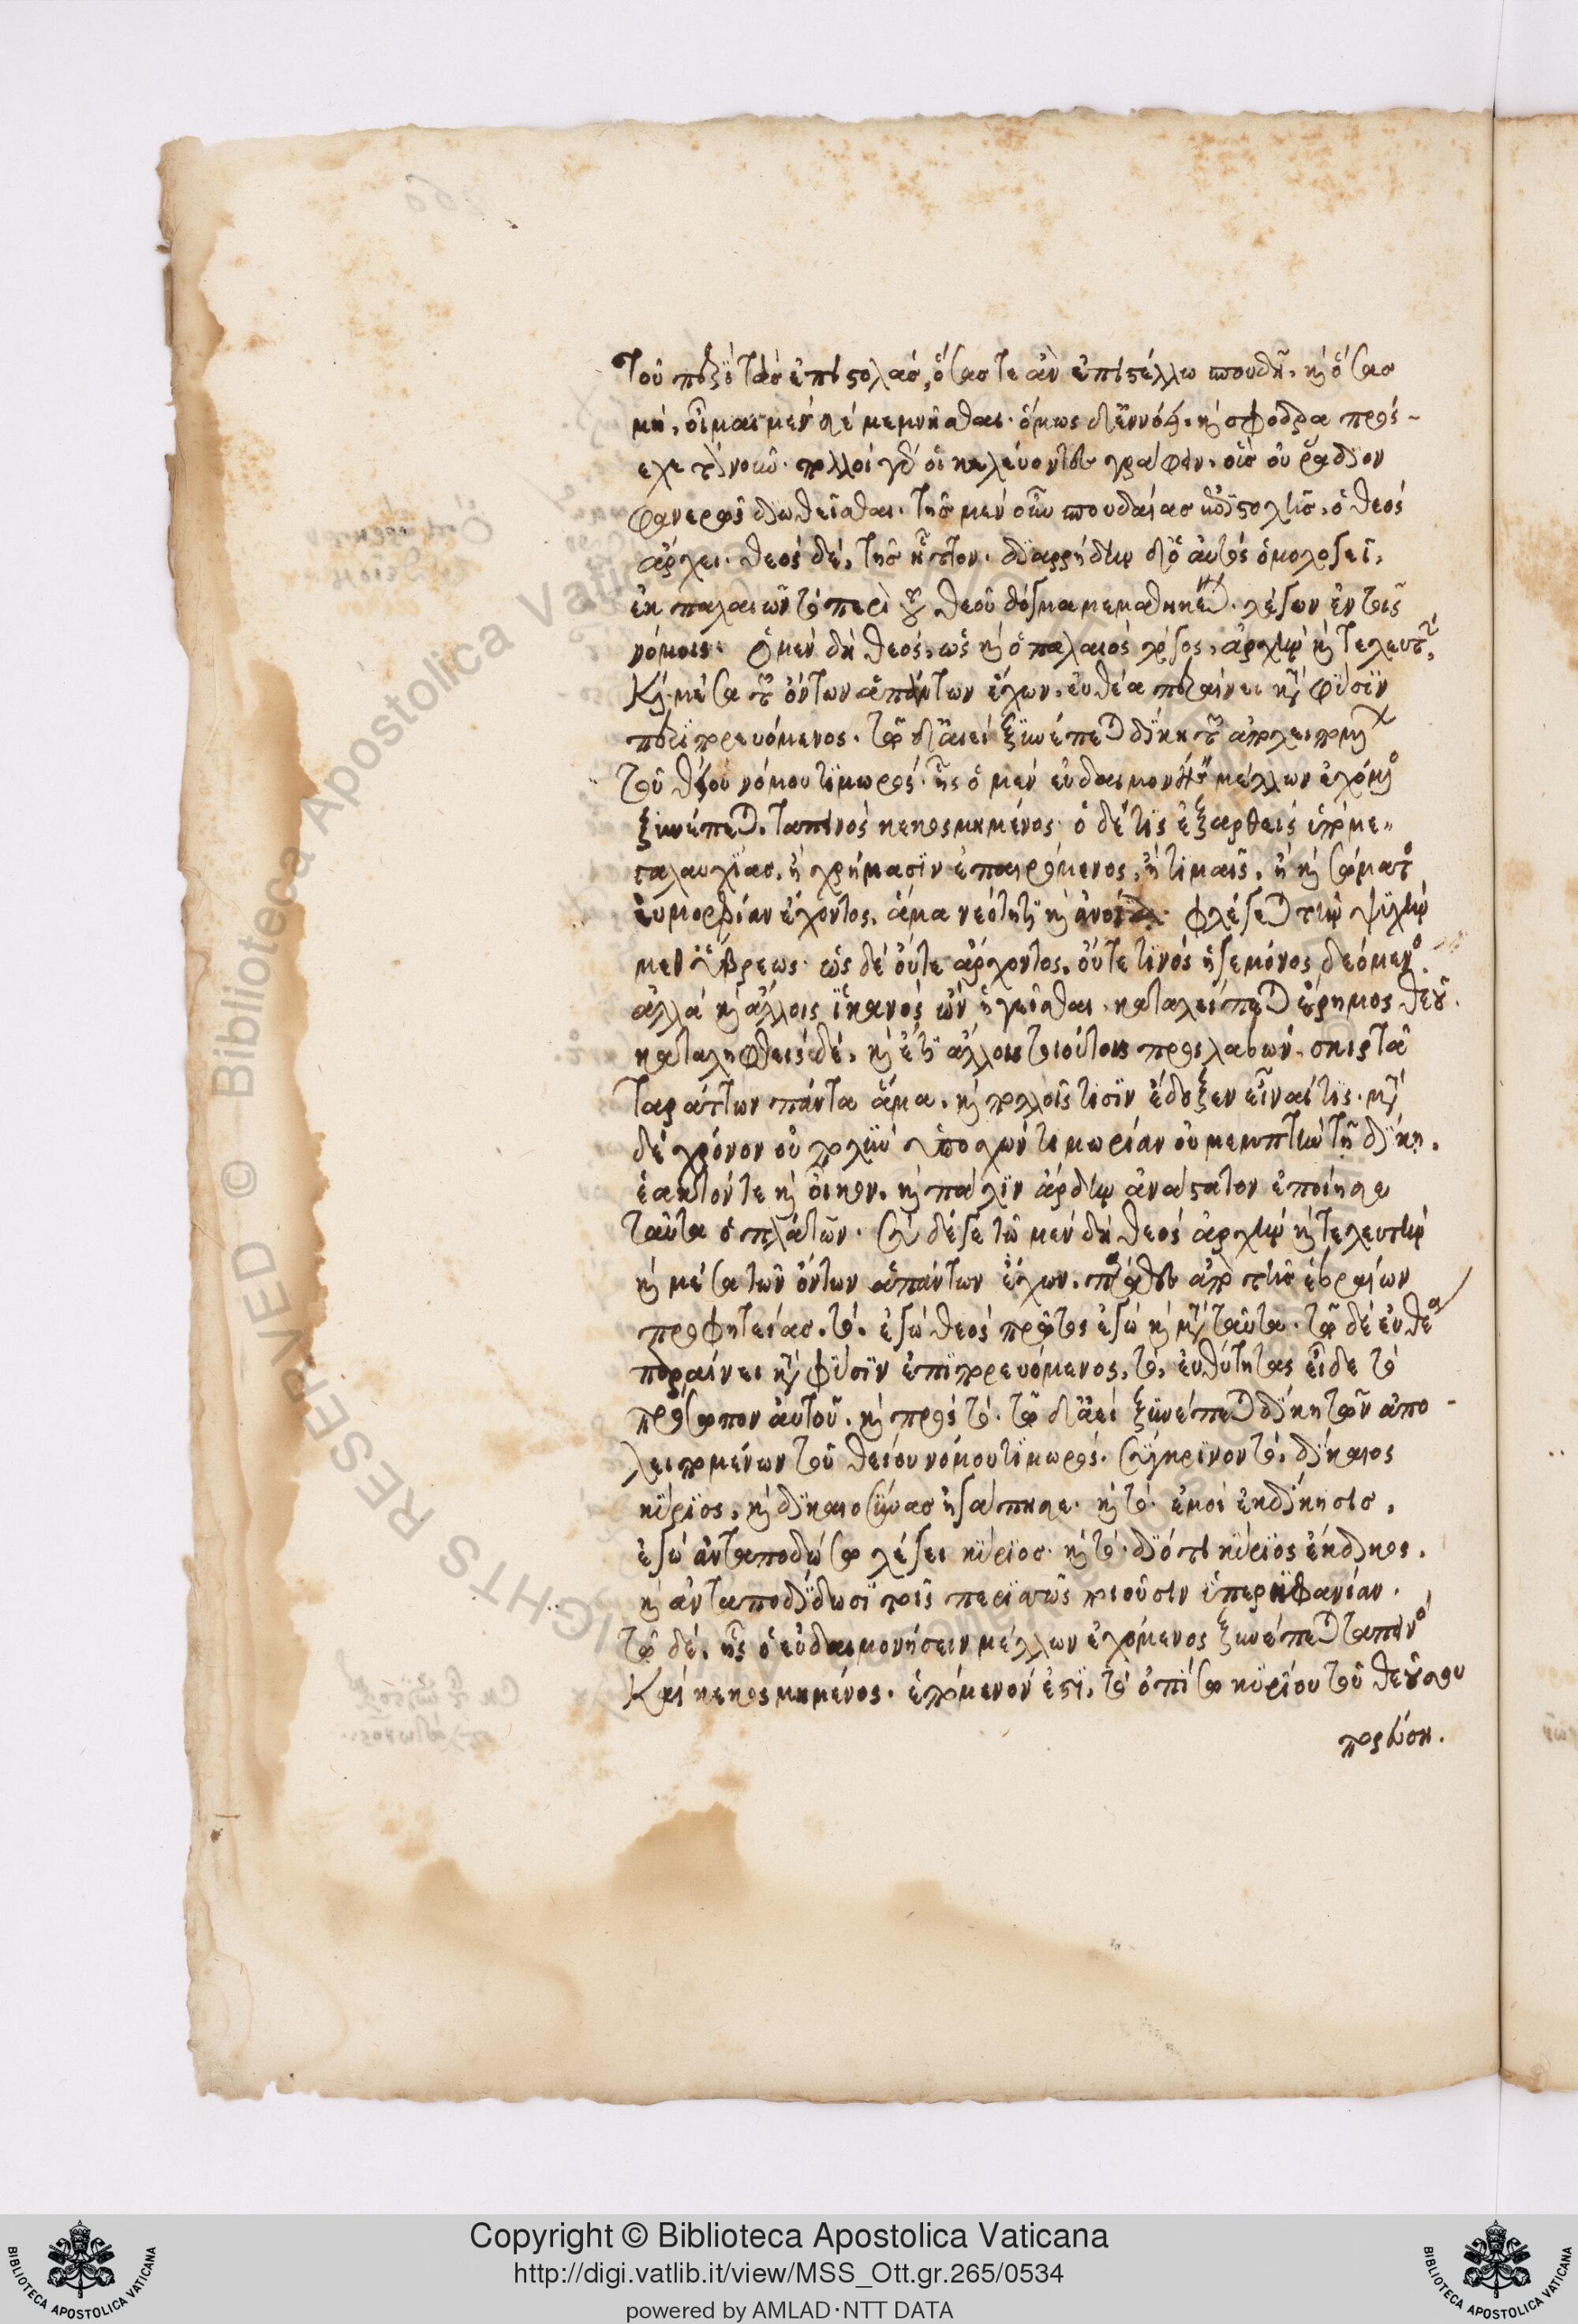 τοῦ περὶ τὰς ἐπιστολάς, ὅσας τε ἂν ἐπιστέλλω σπουδῇ, καὶ ὅσας
μή, οἶμαι μέν σε μεμνῆσθαι· ὅμως δ' ἐννόει, καὶ σφόδρα πρόσ-
εχε τὸν νοῦν· πολλοὶ γὰρ οἱ κελεύοντες γράφειν, οὓς οὐ ῥάδιον
φανερῶς διωθεῖσθαι. τῆς μὲν οὖν σπουδαίας ἐπιστολῆς, ὁ θεὸς
ἄρχει. θεοὶ δέ, τῆς ἧττον. διαρρήδην δὲ ὁ αὐτὸς ὁμολογεῖ,
ἐκ παλαιῶν τὸ περὶ τοῦ θεοῦ δόγμα μεμαθηκέναι. λέγων ἐν τοῖς
νόμοις. ὁ μὲν δὴ θεός, ὡς καὶ ὁ παλαιὸς λόγος, ἀρχὴν καὶ τελευτὴν,
καὶ μέσα τῶν ὄντων ἁπάντων ἔχων, εὐθέα περαίνει κατὰ φύσιν
περιπορευόμενος. τῷ δ' ἀεὶ ξυνέπεται δίκη τῶν ἀπολειπομένων
τοῦ θείου νόμου τιμωρός. ἧς ὁ μὲν εὐδαιμονήσειν μέλλων ἐχόμενος
ξυνέπεται, ταπεινὸς κεκοσμημένος· ὁ δέ τις ἐξαρθεὶς ὑπὸ με-
γαλαυχίας, ἢ χρήμασιν ἐπαιρόμενος, ἢ τιμαῖς, ἢ καὶ σώματος
εὐμορφίαν ἔχοντος, ἅμα νεότητι καὶ ἀνοίᾳ φλέγεται τὴν ψυχὴν
μεθ' ὕβρεως· ὡς δὲ οὔτε ἄρχοντος, οὔτε τινὸς ἡγεμόνος δεόμενος.
ἀλλὰ καὶ ἄλλοις ἱκανὸς ὢν ἡγεῖσθαι, καταλείπεται ἔρημος θεοῦ.
καταληφθεὶς δέ, καὶ ἔτι ἄλλους τοιούτους προσλαβών, σκιρτᾷ
ταράττων πάντα ἅμα, καὶ πολλοῖς τισὶν ἔδοξεν εἶναί τις. μετὰ
δὲ χρόνον οὐ πολὺν ὑποσχὼν τιμωρίαν οὐ μεμπτὴν τῇ δίκῃ,
ἑαυτόν τε καὶ οἶκον, καὶ πάλιν ἄρδην ἀνάστατον ἐποίησε
ταῦτα ὁ πλάτων. σὺ δέ γε τῷ μὲν δὴ θεὸς ἀρχὴν καὶ τελευτὴν
καὶ μέσα τῶν ὄντων ἁπάντων ἔχων, παράθες ἀπὸ τῆς ἑβραίων
προφητείας, τό, ἐγὼ θεὸς πρῶτος ἐγὼ καὶ μετὰ ταῦτα. τῷ δὲ εὐθέα
περαίνει κατὰ φύσιν ἐπιπορευόμενος, τό, εὐθύτητας εἶδε τὸ
πρόσωπον αὐτοῦ. καὶ πρὸς τό, τῷ δ' ἀεὶ ξυνέπεται δίκη τῶν ἀπο-
λειπομένων τοῦ θείου νόμου τιμωρός. σύγκρινον τό, δίκαιος
κύριος, καὶ δικαιοσύνας ἠγάπησε. καὶ τό, ἐμοὶ ἐκδίκησις,
ἐγὼ ἀνταποδώσω λέγει κύριος. καὶ τό, διότι κύριος ἔκδικος,
καὶ ἀνταποδίδωσι τοῖς περισσῶς ποιοῦσιν ὑπερηφανίαν.
τῷ δέ, ἧς ὁ εὐδαιμονήσειν μέλλων ἐχόμενος ξυνέπεται ταπεινὸς
καὶ κεκοσμημένος. ἑπόμενόν ἐστι, τὸ ὀπίσω κυρίου τοῦ θεοῦ σου
πορεύσῃ.